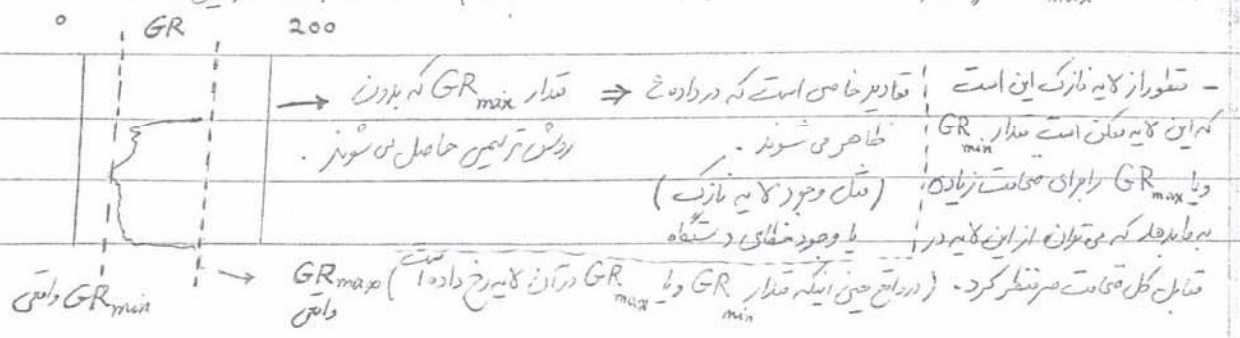 0 GR 200
- منظور از لایه نازک این است
که این لایه ممکن است مقدار GR min
و یا GR max را برای ضخامت زیاد
به ما بدهد که می توان از این لایه در
مقابل کل ضخامت صرفنظر کرد. (در واقع عین اینکه مقدار GR min و یا GR max در آن لایه رخ داده است)
مقادیر خاصی است که در داده ها
ظاهر می شوند.
(مثل وجود لایه نازک)
یا وجود خطای دستگاه
⇒ مقدار GR max که بدون
روش ترسیمی حاصل می شوند.
→
→ GR max واقعی
GR min واقعی